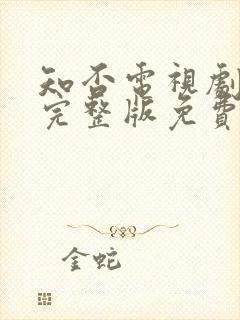 知否電視劇
完整版免費
金蛇